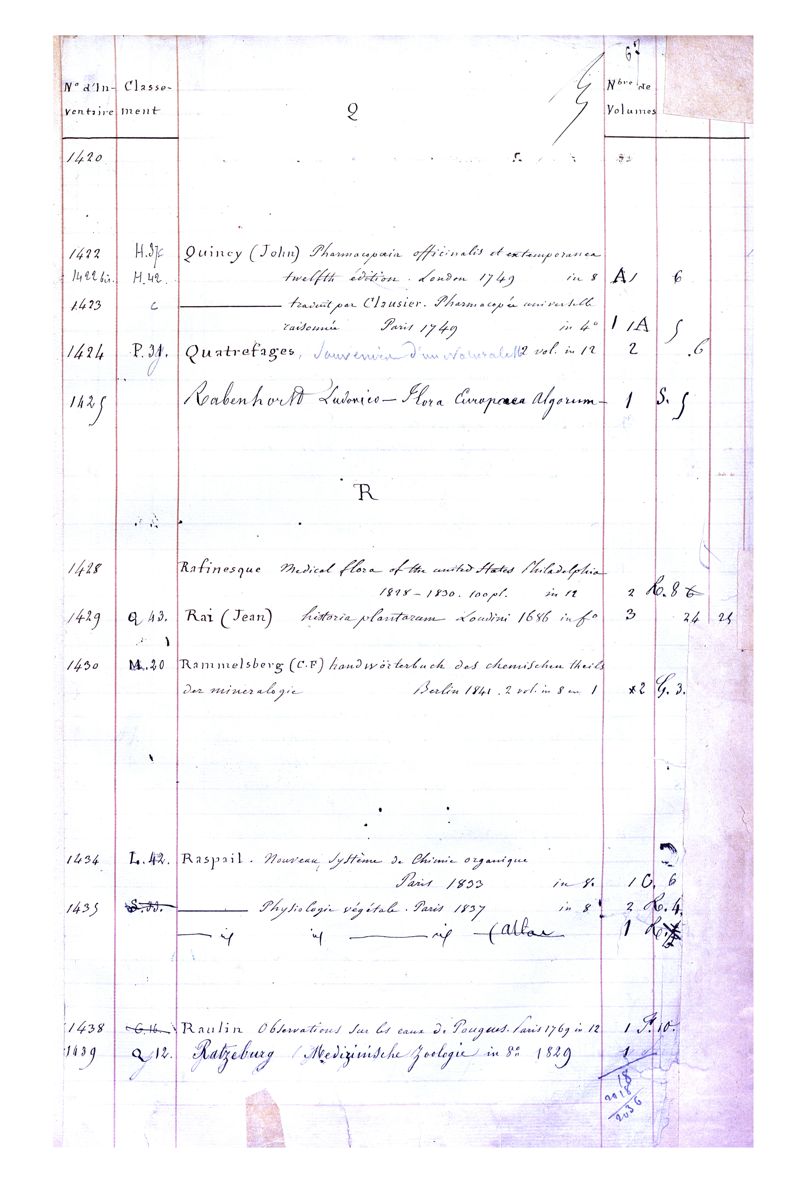 67
N° d'In- Classe- Nbre de
ventaire ment Q Volumes
1420
1422 H.37 Quincy (John) Pharmacopœia officinalis et extemporanea
1422 bis. H.42. twelfth édition. London 1749 in 8 A 1 6
1423 c ——— traduit par Clausier. Pharmacopée universelle
raisonnée Paris 1749 in 4° 1 1A 5
1424 P.31. Quatrefages, Souvenirs d'un Naturaliste 2 vol. in 12 2 .6
1425 Rabenhorst Ludovico — Flora Europaea Algarum — 1 S. 5
R
1428 Rafinesque Medical flora of the united States Philadelphia
1828 – 1830. 100 pl. in 12 2 R. 8
1429 Q 43. Rai (Jean) historia plantarum Londini 1686 in f° 3 24 25
1430 M.20 Rammelsberg (C.F) handwörterbuch des chemischen theils
der mineralogie Berlin 1841. 2 vol. in 8 en 1 2 G. 3.
1434 L.42. Raspail. Nouveau système de Chimie organique
Paris 1833 in 8. 1 C. 6
1435 S.33. ——— Physiologie végétale. Paris 1837 in 8 2 R. 4.
— id id — id — (Atlas 1 R.
1438 C.16. Raulin Observations sur les eaux de Pougues. Paris 1769 in 12 1 F. 10.
1439 Q 12. Ratzeburg (Medizinische Zoologie in 8° 1829 1
18
2018
2036